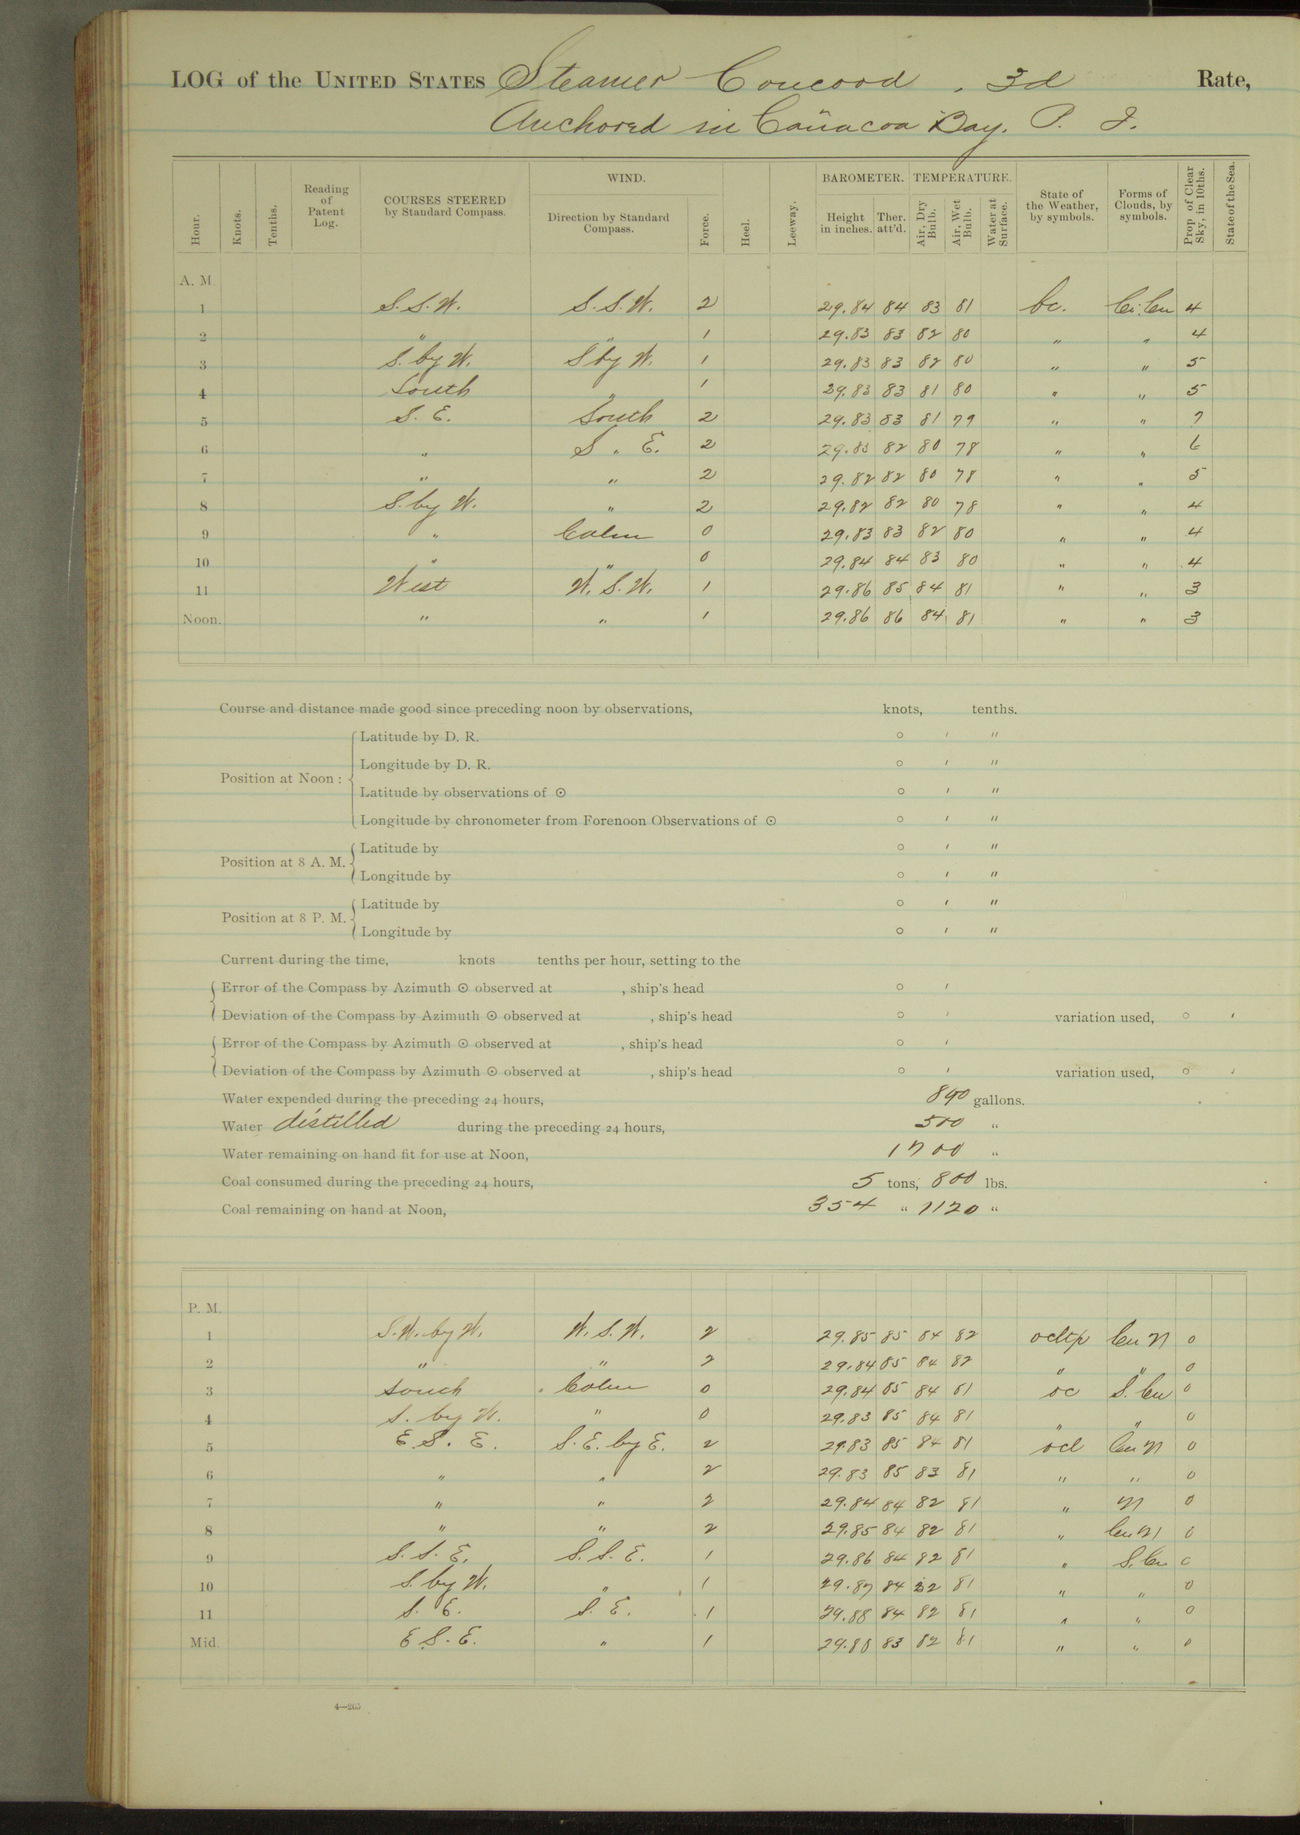 LOG of the UNITED STATES Steamer Concord, 3d Rate,
Anchored in Cañacoa Bay. P. I.
Hour. Knots. Tenths. Reading of Patent Log. COURSES STEERED by Standard Compass. WIND. Direction by Standard Compass. Force. Heel. Leeway. BAROMETER. Height in inches. Ther. att'd. TEMPERATURE. Air, Dry Bulb. Air, Wet Bulb. Water at Surface. State of the Weather, by symbols. Forms of Clouds, by symbols. Prop of Clear Sky, in 10ths. State of the Sea.
A. M.
1 S.S.W. S.S.W. 2 29.84 84 83 81 bc. Ci.Cu 4
2 " " 1 29.83 83 82 80 " " 4
3 S. by W. S by W. 1 29.83 83 82 80 " " 5
4 South " 1 29.83 83 81 80 " " 5
5 S. E. South 2 29.83 83 81 79 " " 7
6 " S " E. 2 29.83 82 80 78 " " 6
7 " " 2 29.82 82 80 78 " " 5
8 S. by W. " 2 29.82 82 80 78 " " 4
9 " Calm 0 29.83 83 82 80 " " 4
10 " " 0 29.84 84 83 80 " " 4
11 West W. S. W. 1 29.86 85 84 81 " " 3
Noon. " " 1 29.86 86 84 81 " " 3
Course and distance made good since preceding noon by observations, knots, tenths.
Position at Noon: Latitude by D. R. ° ′ ″
Longitude by D. R. ° ′ ″
Latitude by observations of ☉ ° ′ ″
Longitude by chronometer from Forenoon Observations of ☉ ° ′ ″
Position at 8 A. M. Latitude by ° ′ ″
Longitude by ° ′ ″
Position at 8 P. M. Latitude by ° ′ ″
Longitude by ° ′ ″
Current during the time, knots tenths per hour, setting to the
Error of the Compass by Azimuth ☉ observed at , ship's head ° ′
Deviation of the Compass by Azimuth ☉ observed at , ship's head ° ′ variation used, ° ′
Error of the Compass by Azimuth ☉ observed at , ship's head ° ′
Deviation of the Compass by Azimuth ☉ observed at , ship's head ° ′ variation used, ° ′
Water expended during the preceding 24 hours, 890 gallons.
Water distilled during the preceding 24 hours, 500 "
Water remaining on hand fit for use at Noon, 1700 "
Coal consumed during the preceding 24 hours, 5 tons, 800 lbs.
Coal remaining on hand at Noon, 354 " 1120 "
P. M.
1 S.W. by W. W. S. W. 2 29.85 85 84 82 ocltp Cu N 0
2 " " 2 29.84 85 84 82 " " 0
3 South Calm 0 29.84 85 84 81 oc S. Cu 0
4 S. by W. " 0 29.83 85 84 81 " " 0
5 E. S. E. S. E. by E. 2 29.83 85 84 81 ocl Cu N 0
6 " " 2 29.83 85 83 81 " " 0
7 " " 2 29.84 84 82 81 " N 0
8 " " 2 29.85 84 82 81 " Cu N 0
9 S. S. E. S. S. E. 1 29.86 84 82 81 " S. Cu 0
10 S. by W. " 1 29.87 84 82 81 " " 0
11 S. E. S. E. 1 29.88 84 82 81 " " 0
Mid. E. S. E. " 1 29.88 83 82 81 " " 0
4—265